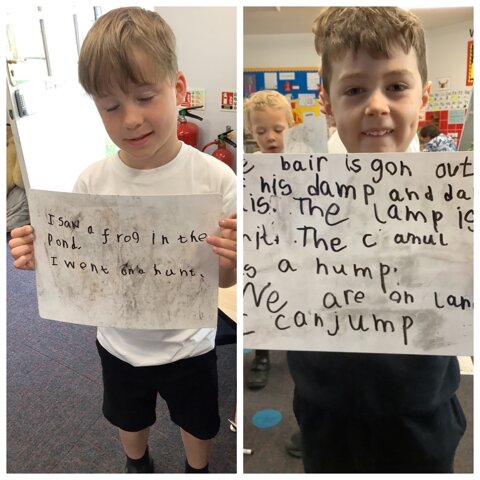 I saw a frog in the
pond.
I went on a hunt.
bair is gon out
his damp and da
is. The lamp is
The camul
s a hump.
We are on lan
can jump